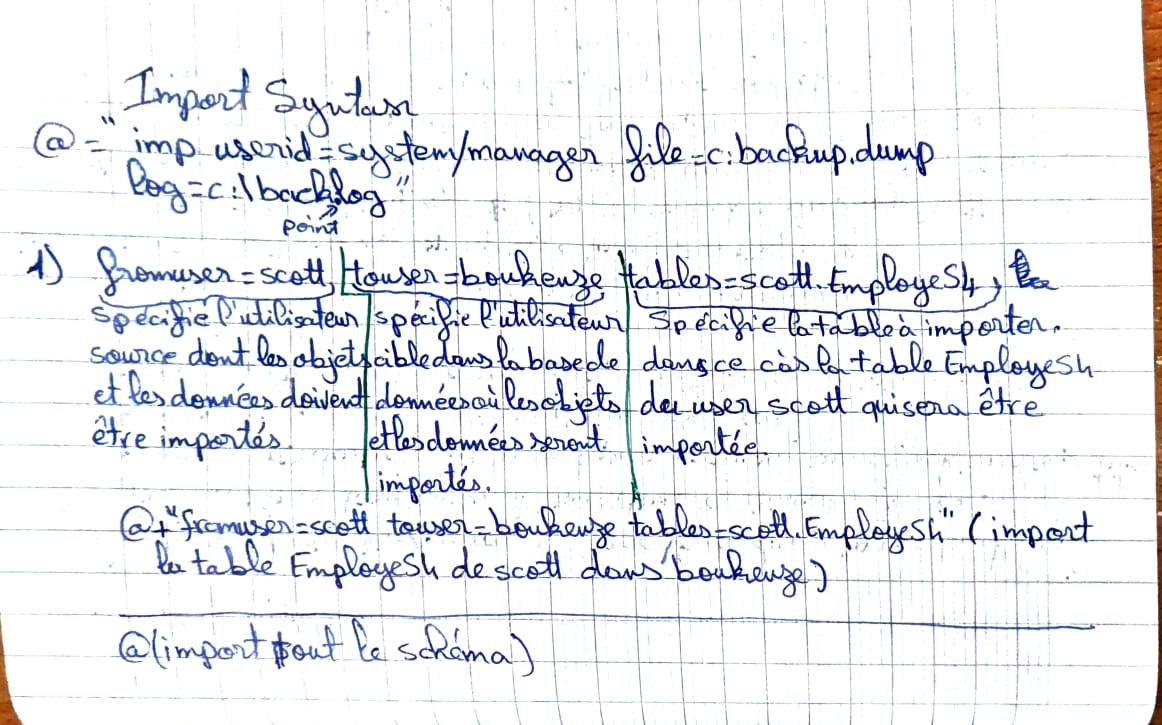 Import Syntaxe
@ = "imp userid=system/manager file=c:backup.dump
log=c:\backlog"
point
1) fromuser=scott, touser=boukeuze, tables=scott.EmployeSh,
Spécifie l'utilisateur
source dont les objets
et les données doivent
être importés.
spécifie l'utilisateur
cible dans la base de
données où les objets
et les données seront
importés.
Spécifie la table à importer.
dans ce càs la table EmployeSh
du user scott qui sera être
importée.
@+"fromuser=scott touser=boukeuze tables=scott.EmployeSh" (import
la table EmployeSh de scott dans boukeuze)
@(import tout le schéma)